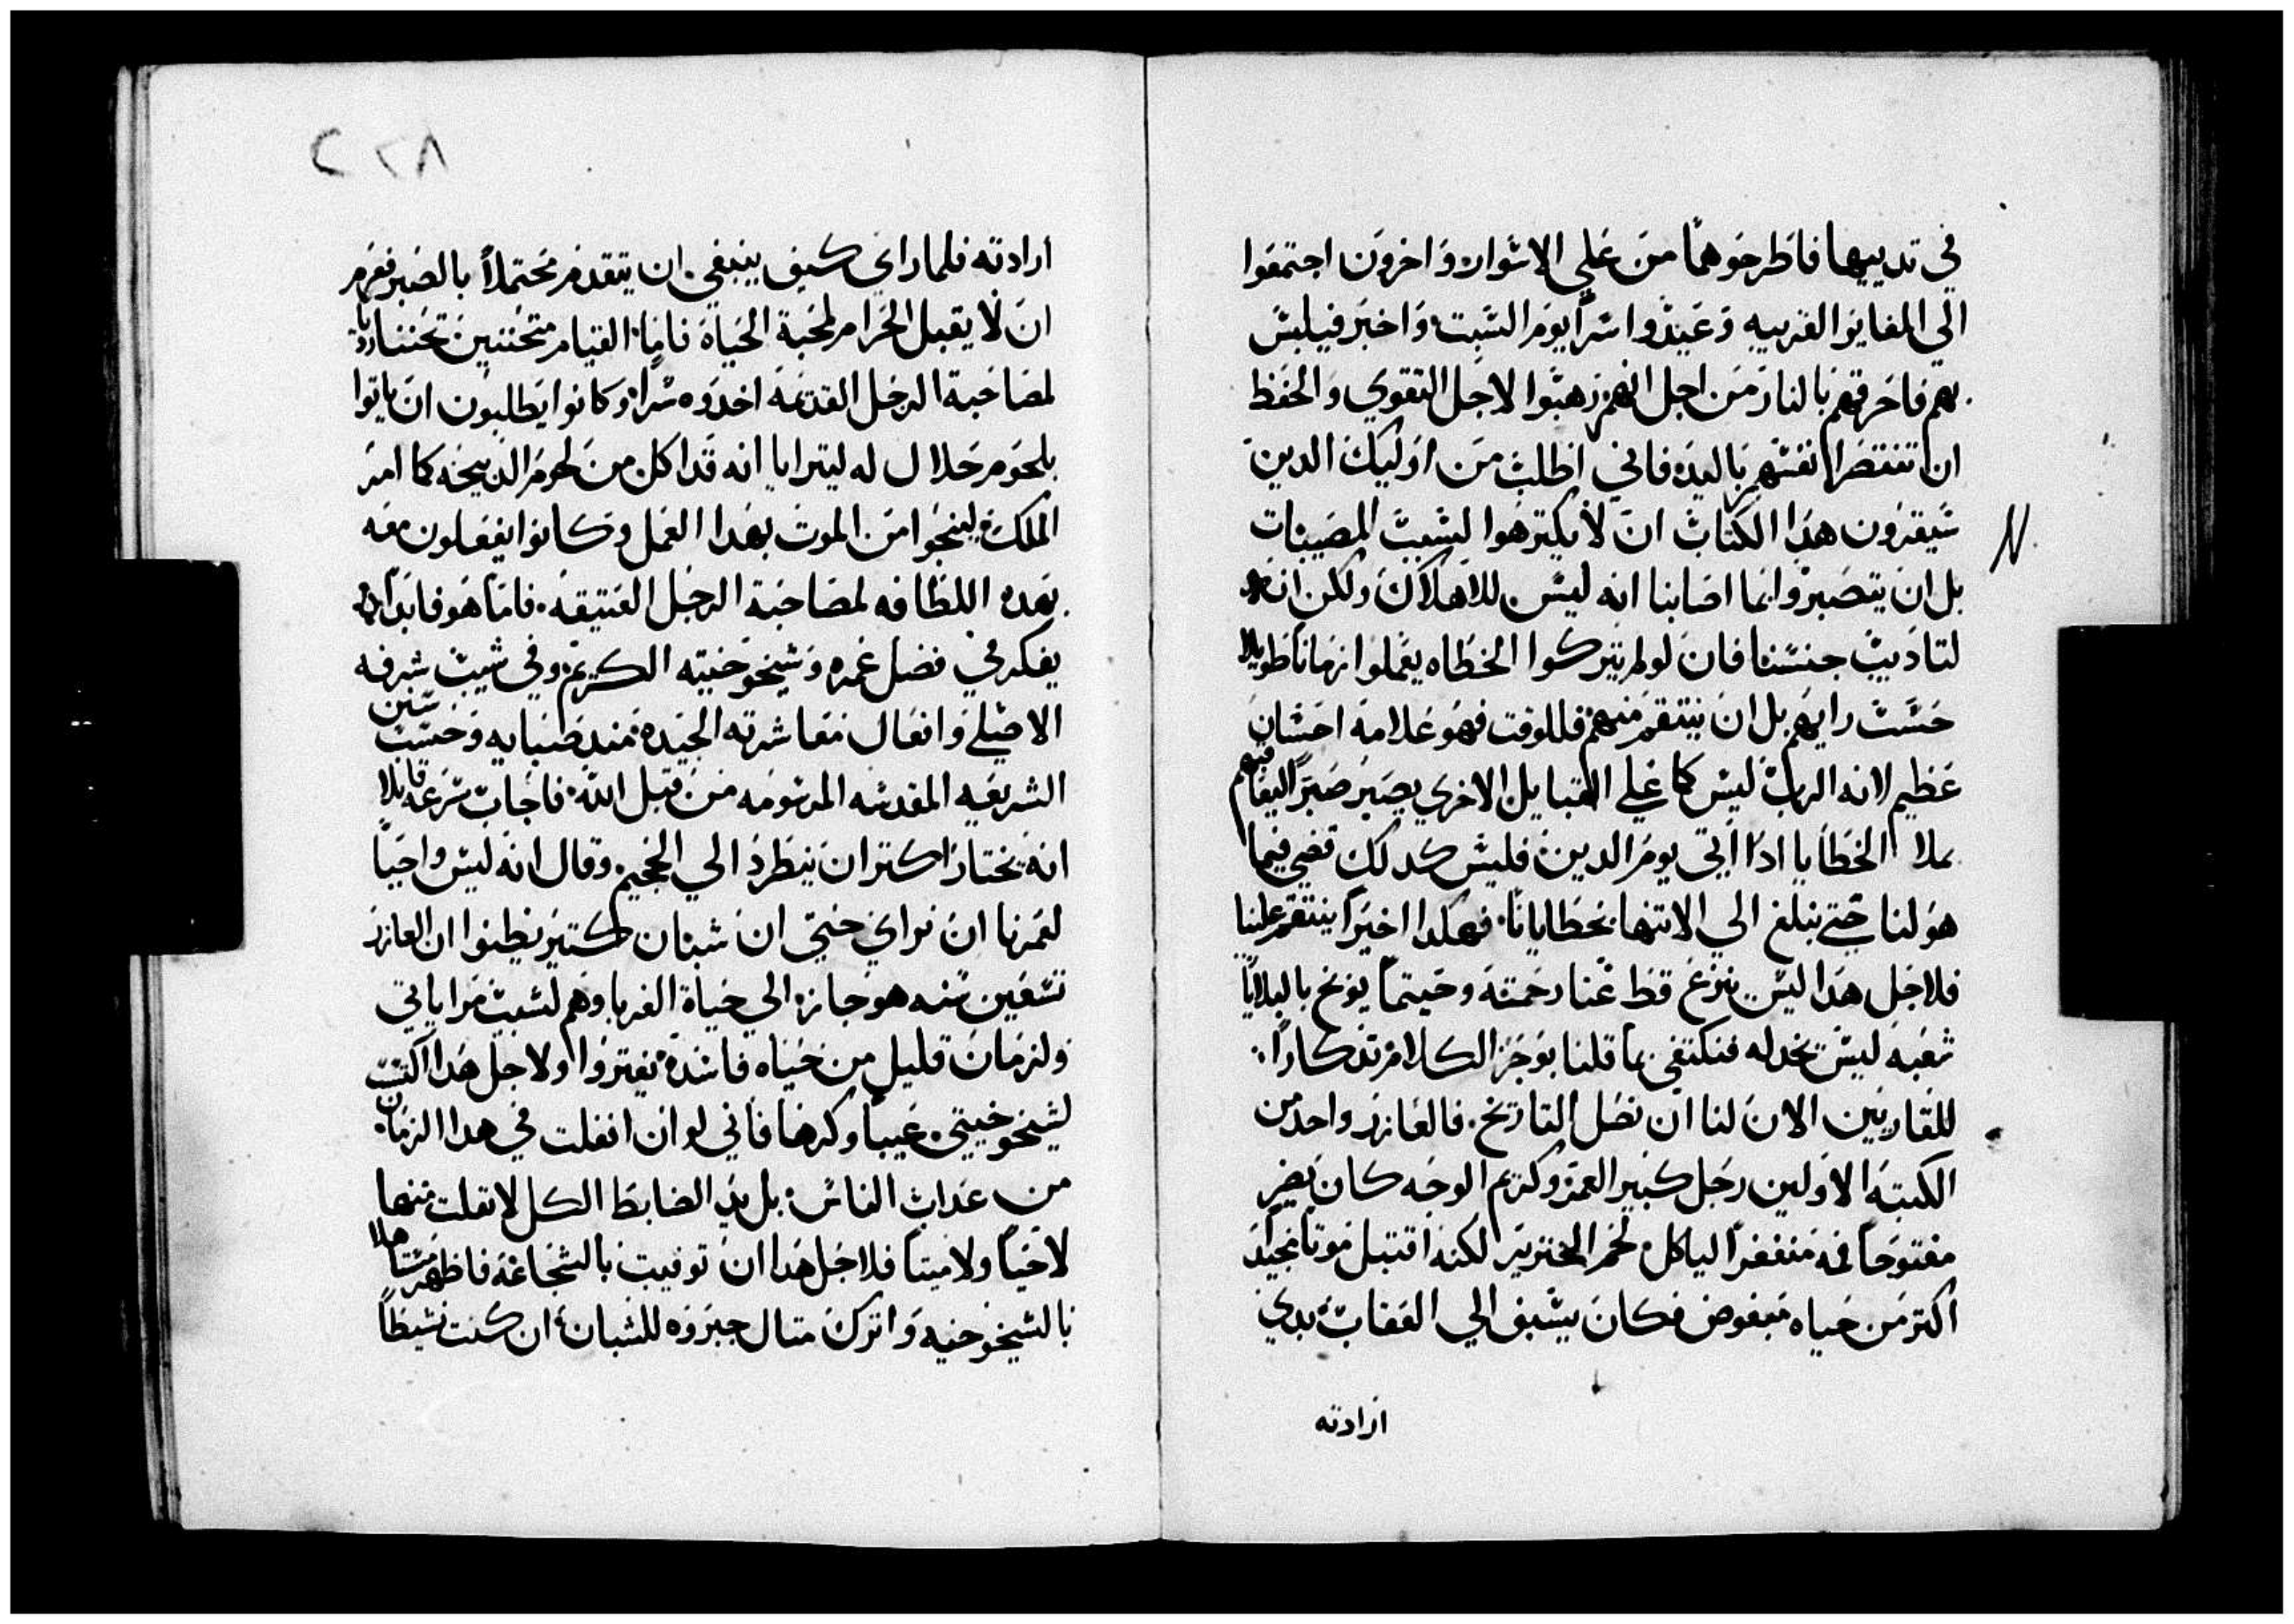 في تدييها فاطرحوهما من علي الاسوار واخرون اجتمعوا
الي المغاير القريبه وعيدوا سرا يوم السبت واخبر فيلبس
بهم فاحرقهم بالنار من اجل انهم رهبوا لاجل التقوي والحفظ
ان تنتصر انفسهم باليد فاني اطلب من اوليك الدين
سيقرون هدا الكتاب ان لا يكترهوا لسبب المصيبات
بل ان يتصبروا انما اصابنا انه ليس للاهلاك ولكن انه
لتاديب جنسنا فان لو لم يتركوا الخطاه يعملوا زمانا طويلا
حسب رايهم بل ان ينتقم منهم فللوقت فهو علامة احسان
عظيم لانه الرب ليس كما علي القبايل الاخري يصبر صبرا ليعاقبهم
بملا الخطايا ادا اتي يوم الدين فليس كدلك قضي فيما
هو لنا حتي نبلغ الي الانتها بخطايانا فهكدا اخيرا ينتقم علينا
فلاجل هدا ليس ينزع قط عنا رحمته وحيتما يوبخ بالبلايا
شعبه ليس يخدله فنكتفي بما قلنا بوجز الكلام تدكارا
للقاريين الان لنا ان نصل التاريخ فالعازر واحد من
الكتبه الاولين رجل كبير العمر وكريم الوجه كان يضر
مفتوحا فمه منفغرا لياكل لحم الخنزير لكنه اقتبل موتا مجيدا
اكتر من حياه مبغوض فكان يسبق الي العقاب بدي
ارادته
٢٢٨
ارادته فلما راي كيف ينبغي ان يتقدم محتملا بالصبر فعزم
ان لا يقبل الحرام لمحبة الحياه فاما القيام متحننين تحننا رديا
لمصاحبة الرجل القديمه اخدوه سرا وكانوا يطلبون ان ياتوا
بلحوم حلال له ليترايا انه قد اكل من لحوم الدبيحه كما امر
الملك لينجوا من الموت بهدا العمل وكانوا يفعلون معه
بهده اللطافه لمصاحبة الرجل العتيقه فاما هو فابدا ان
يفكر في فضل عمره وشيخوخيته الكريم وفي شيب شرفه
الاصلي وافعال معاشرته الجيده مند صبايه وحسب سنن
الشريعيه المقدسه المرسومه من قبل الله فاجاب سرعه قايلا
انه يختار اكتر ان ينطرد الي الجحيم وقال انه ليس واجبا
لعمرنا ان نراي حتي ان شبان كتير يظنوا ان العازر
تسعين سنه هو جازه الي حياة الغربا وهم لسبب مراياتي
ولزمان قليل من حياه فاسده يغتروا ولاجل هدا اكتسب
لشيخوخيتي عيبا وكرها فاني لو ان انفلت في هدا الزمان
من عداب الناس بل يد الضابط الكل لا تفلت منها
لا حيا ولا ميتا فلاجل هدا ان توفيت بالشجاعه فاظهر مستاهلا
بالشيخوخيه واترك متال جبروه للشبان ان كنت نشيطا